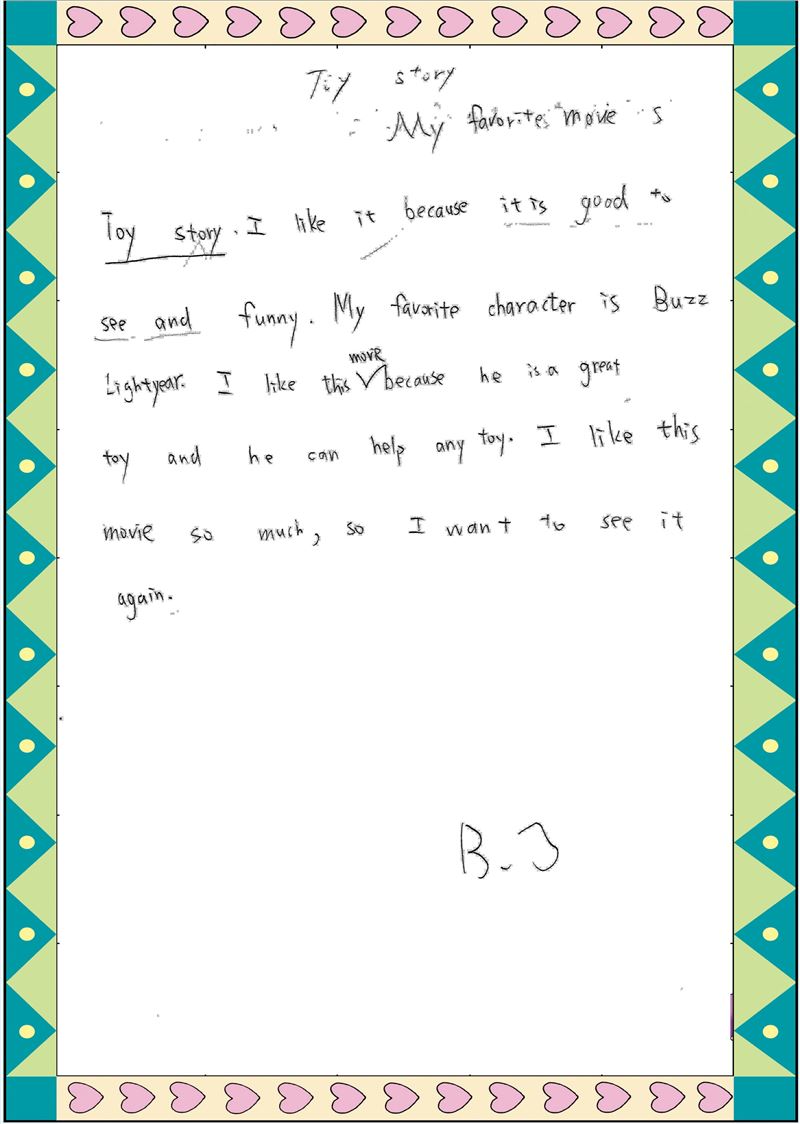 Toy story
My favorite movie s
Toy story. I like it because it is good to
see and funny. My favorite character is Buzz
Lightyear. I like this more because he is a great
toy and he can help any toy. I like this
movie so much, so I want to see it
again.
B.J